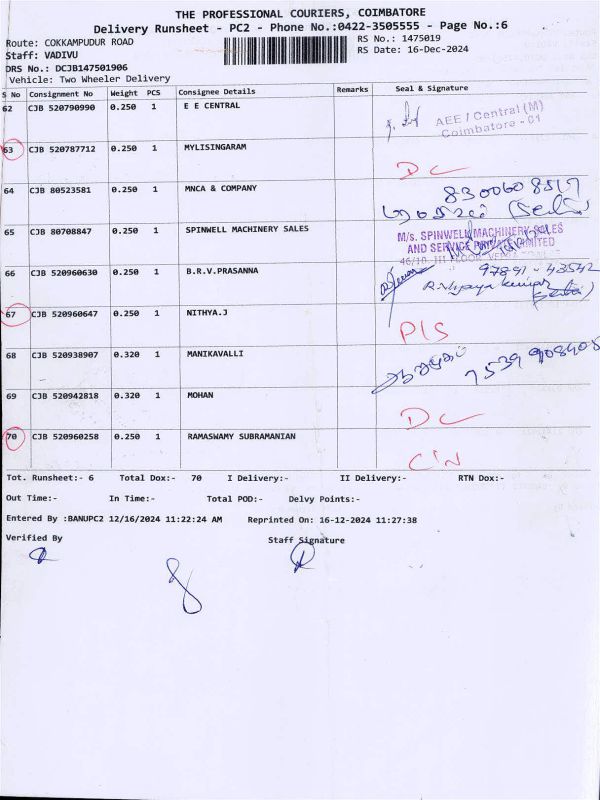 THE PROFESSIONAL COURIERS, COIMBATORE
Delivery Runsheet - PC2 - Phone No.:0422-3505555 - Page No.:6
Route: COKKAMPUDUR ROAD RS No.: 1475019
Staff: VADIVU RS Date: 16-Dec-2024
DRS No.: DCJB147501906
Vehicle: Two Wheeler Delivery
S No Consignment No Weight PCS Consignee Details Remarks Seal & Signature
62 CJB 520790990 0.250 1 E E CENTRAL
AEE / Central (M)
Coimbatore - 01
63 CJB 520787712 0.250 1 MYLISINGARAM
DC
64 CJB 80523581 0.250 1 MNCA & COMPANY
8300608517
65 CJB 80708847 0.250 1 SPINWELL MACHINERY SALES
M/s. SPINWELL MACHINERY SALES
AND SERVICE PRIVATE LIMITED
46/10, III FLOOR
66 CJB 520960630 0.250 1 B.R.V.PRASANNA
97891-43542
R. Vijaya kumar
67 CJB 520960647 0.250 1 NITHYA.J
P/S
68 CJB 520938907 0.320 1 MANIKAVALLI
ஆறுமுகம்
7539908408
69 CJB 520942818 0.320 1 MOHAN
DC
70 CJB 520960258 0.250 1 RAMASWAMY SUBRAMANIAN
C/N
Tot. Runsheet:- 6 Total Dox:- 70 I Delivery:- II Delivery:- RTN Dox:-
Out Time:- In Time:- Total POD:- Delvy Points:-
Entered By :BANUPC2 12/16/2024 11:22:24 AM Reprinted On: 16-12-2024 11:27:38
Verified By Staff Signature